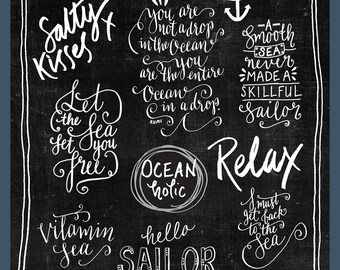 Salty
Kisses
x
You are
not a drop
in the Ocean
you are
the entire
Ocean
in a drop.
RUMI
A
Smooth
SEA
never
MADE A
SKILLFUL
sailor
Let
the Sea
set you
free
OCEAN
holic
Relax
Vitamin
Sea
hello
SAILOR
I must
get back
to the
Sea